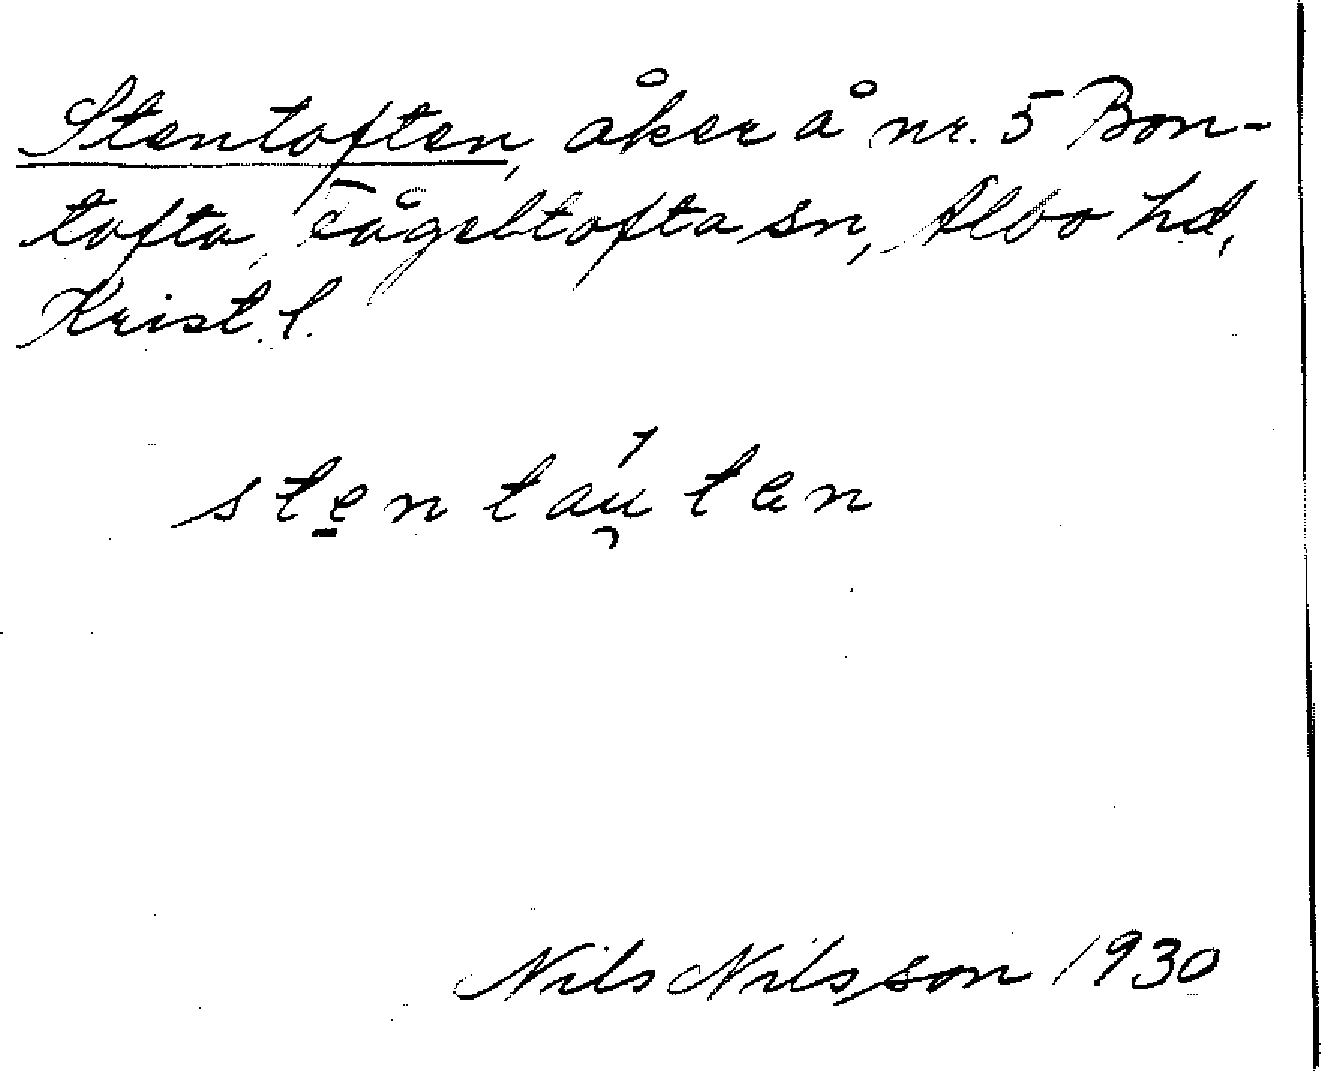 Stentoften, åker å nr. 5 Bon-
tofta, Fågeltofta sn, Albo hd,
Krist. l.
stentáu̯ten
Nils Nilsson 1930